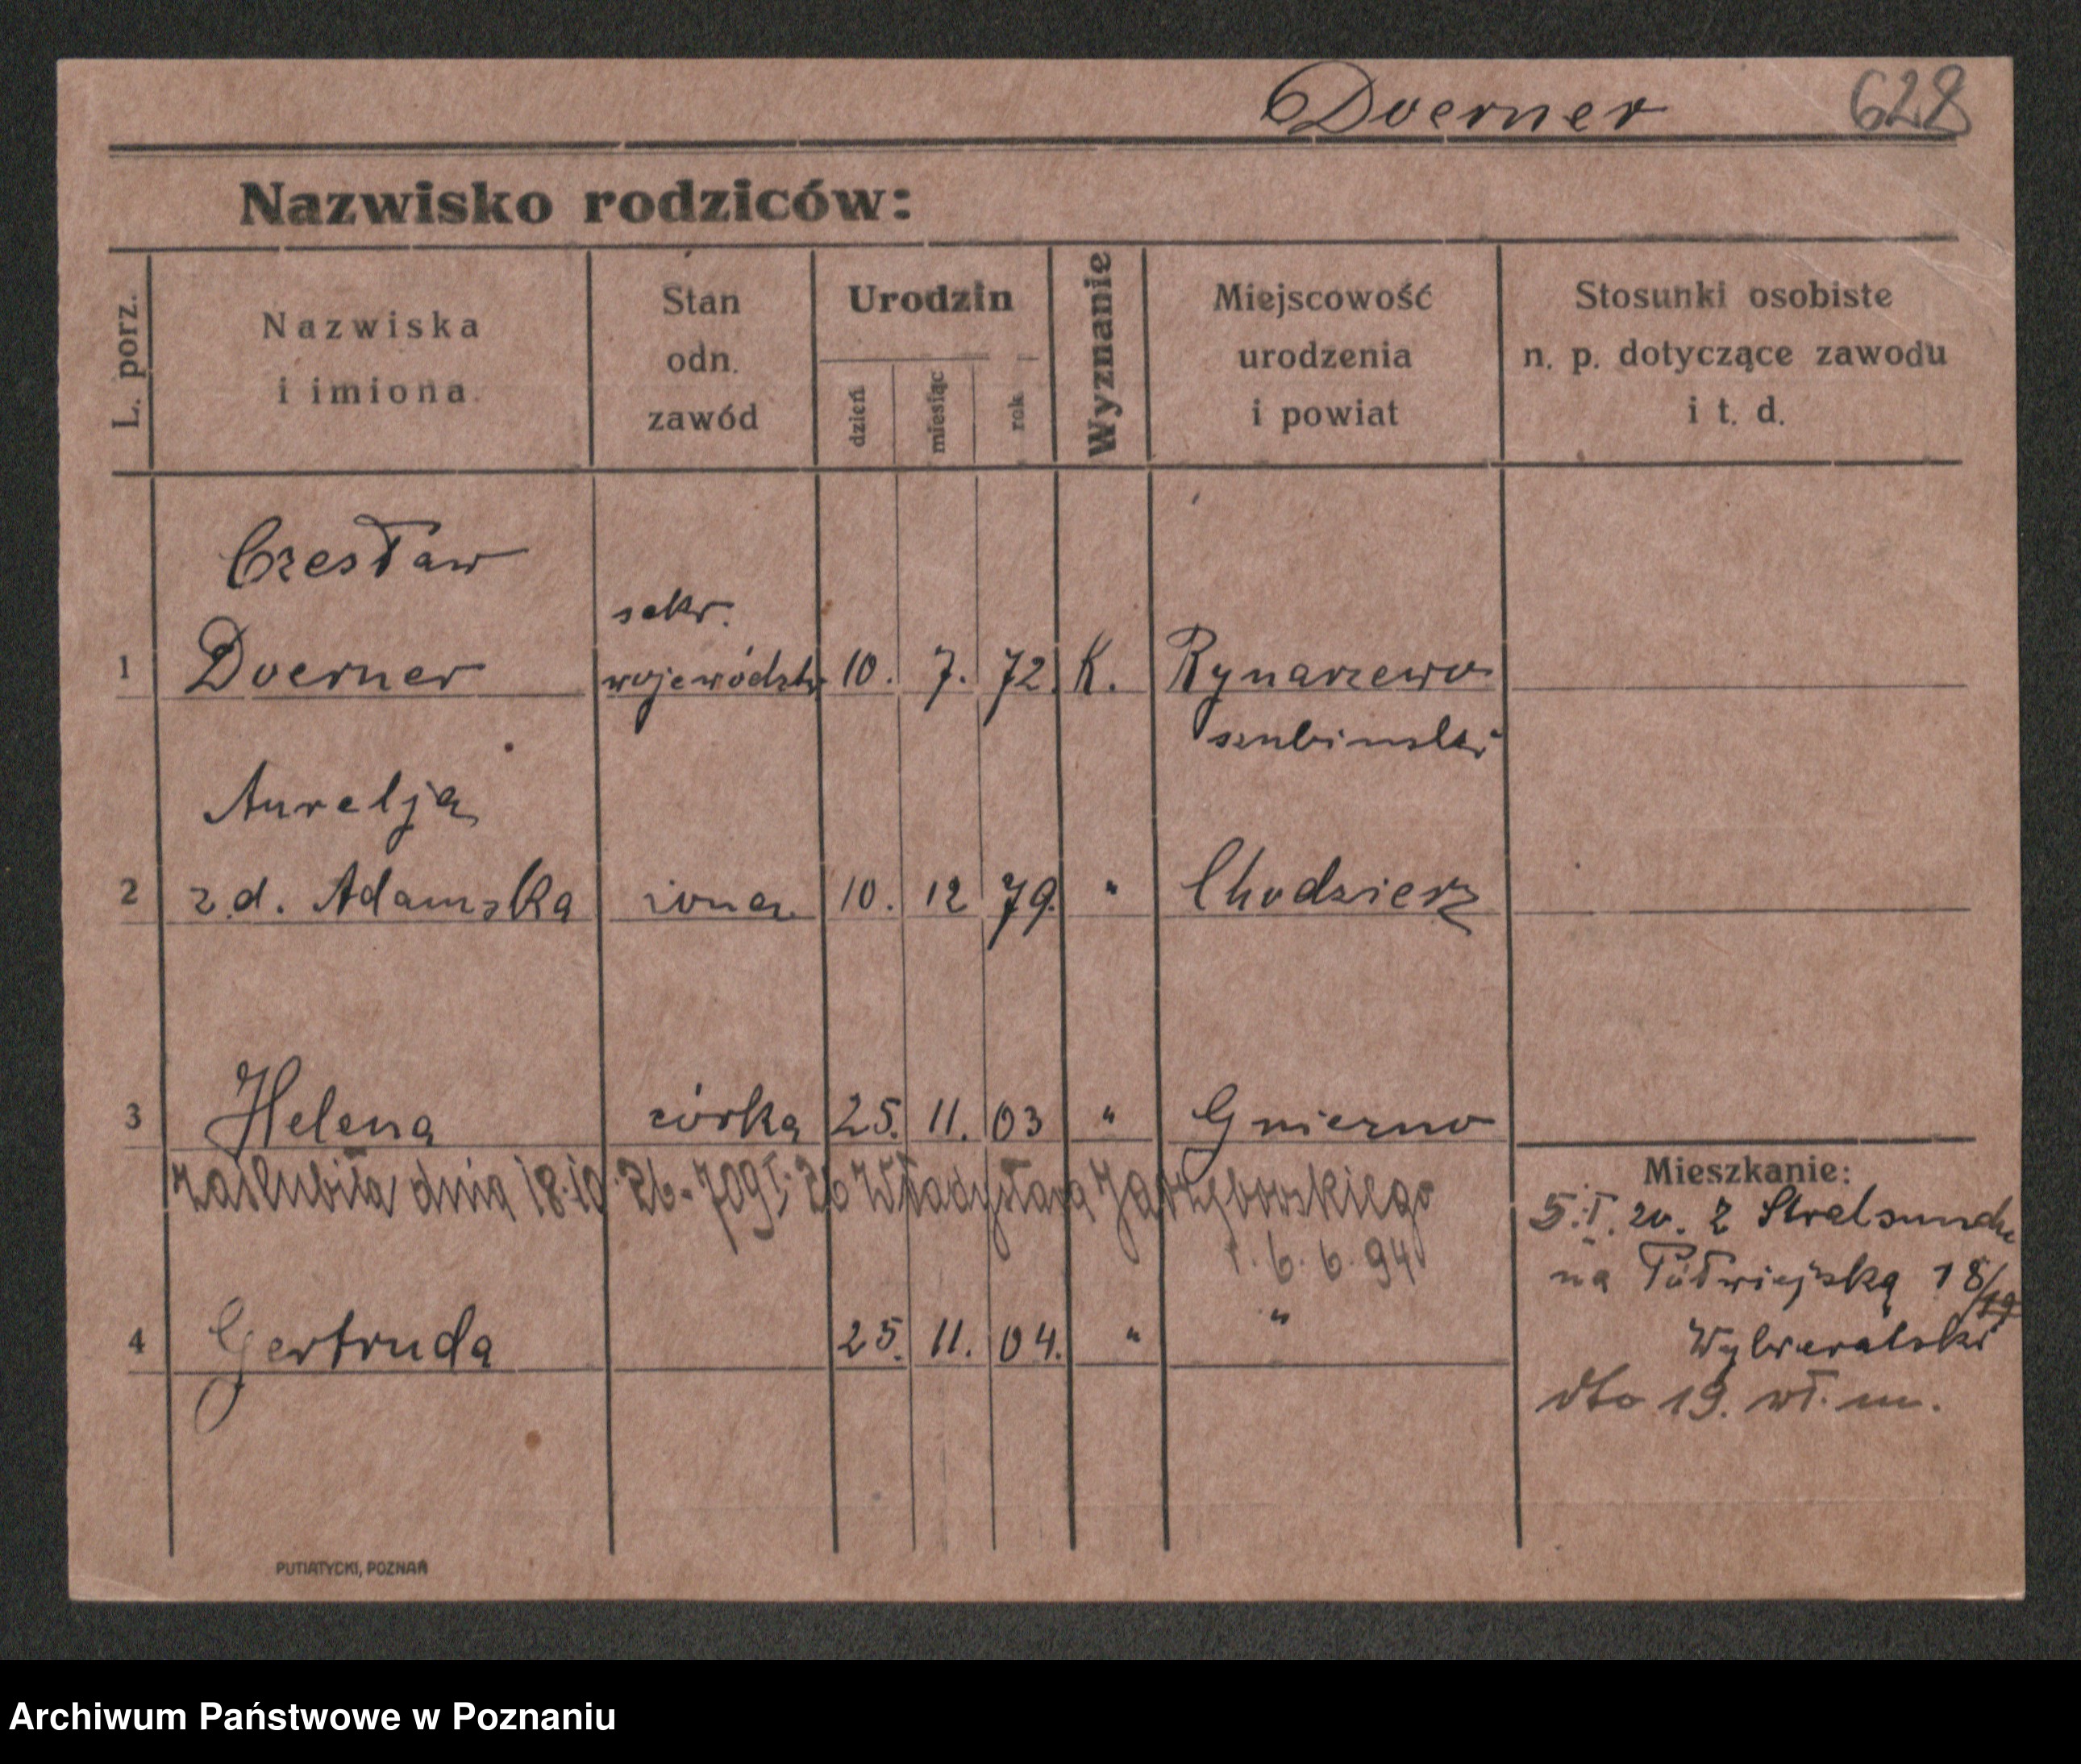 Doerner 628
Nazwisko rodziców:
L. porz.
Nazwiska
i imiona
Stan
odn.
zawód
Urodzin
dzień
miesiąc
rok
Wyznanie
Miejscowość
urodzenia
i powiat
Stosunki osobiste
n. p. dotyczące zawodu
i t. d.
Czesław
sekr.
1 Doerner województw 10. 7. 72. K. Rynarzewo
szubinski
Aurelja
2 z d. Adamska żona 10. 12 79. " Chodzierz
3 Helena córka 25. 11. 03 " Gniezno
zaślubiła dnia 18.10.26 - 709 I. 26 Władysława Jarzębowskiego
6. 6. 94
4 Gertruda 25. 11. 04. " "
Mieszkanie:
5.I.20. z Stralsundu
na Półwiejską 18/19
Wybieralski
dto 19. wł. m.
PUTIATYCKI, POZNAŃ
Archiwum Państwowe w Poznaniu